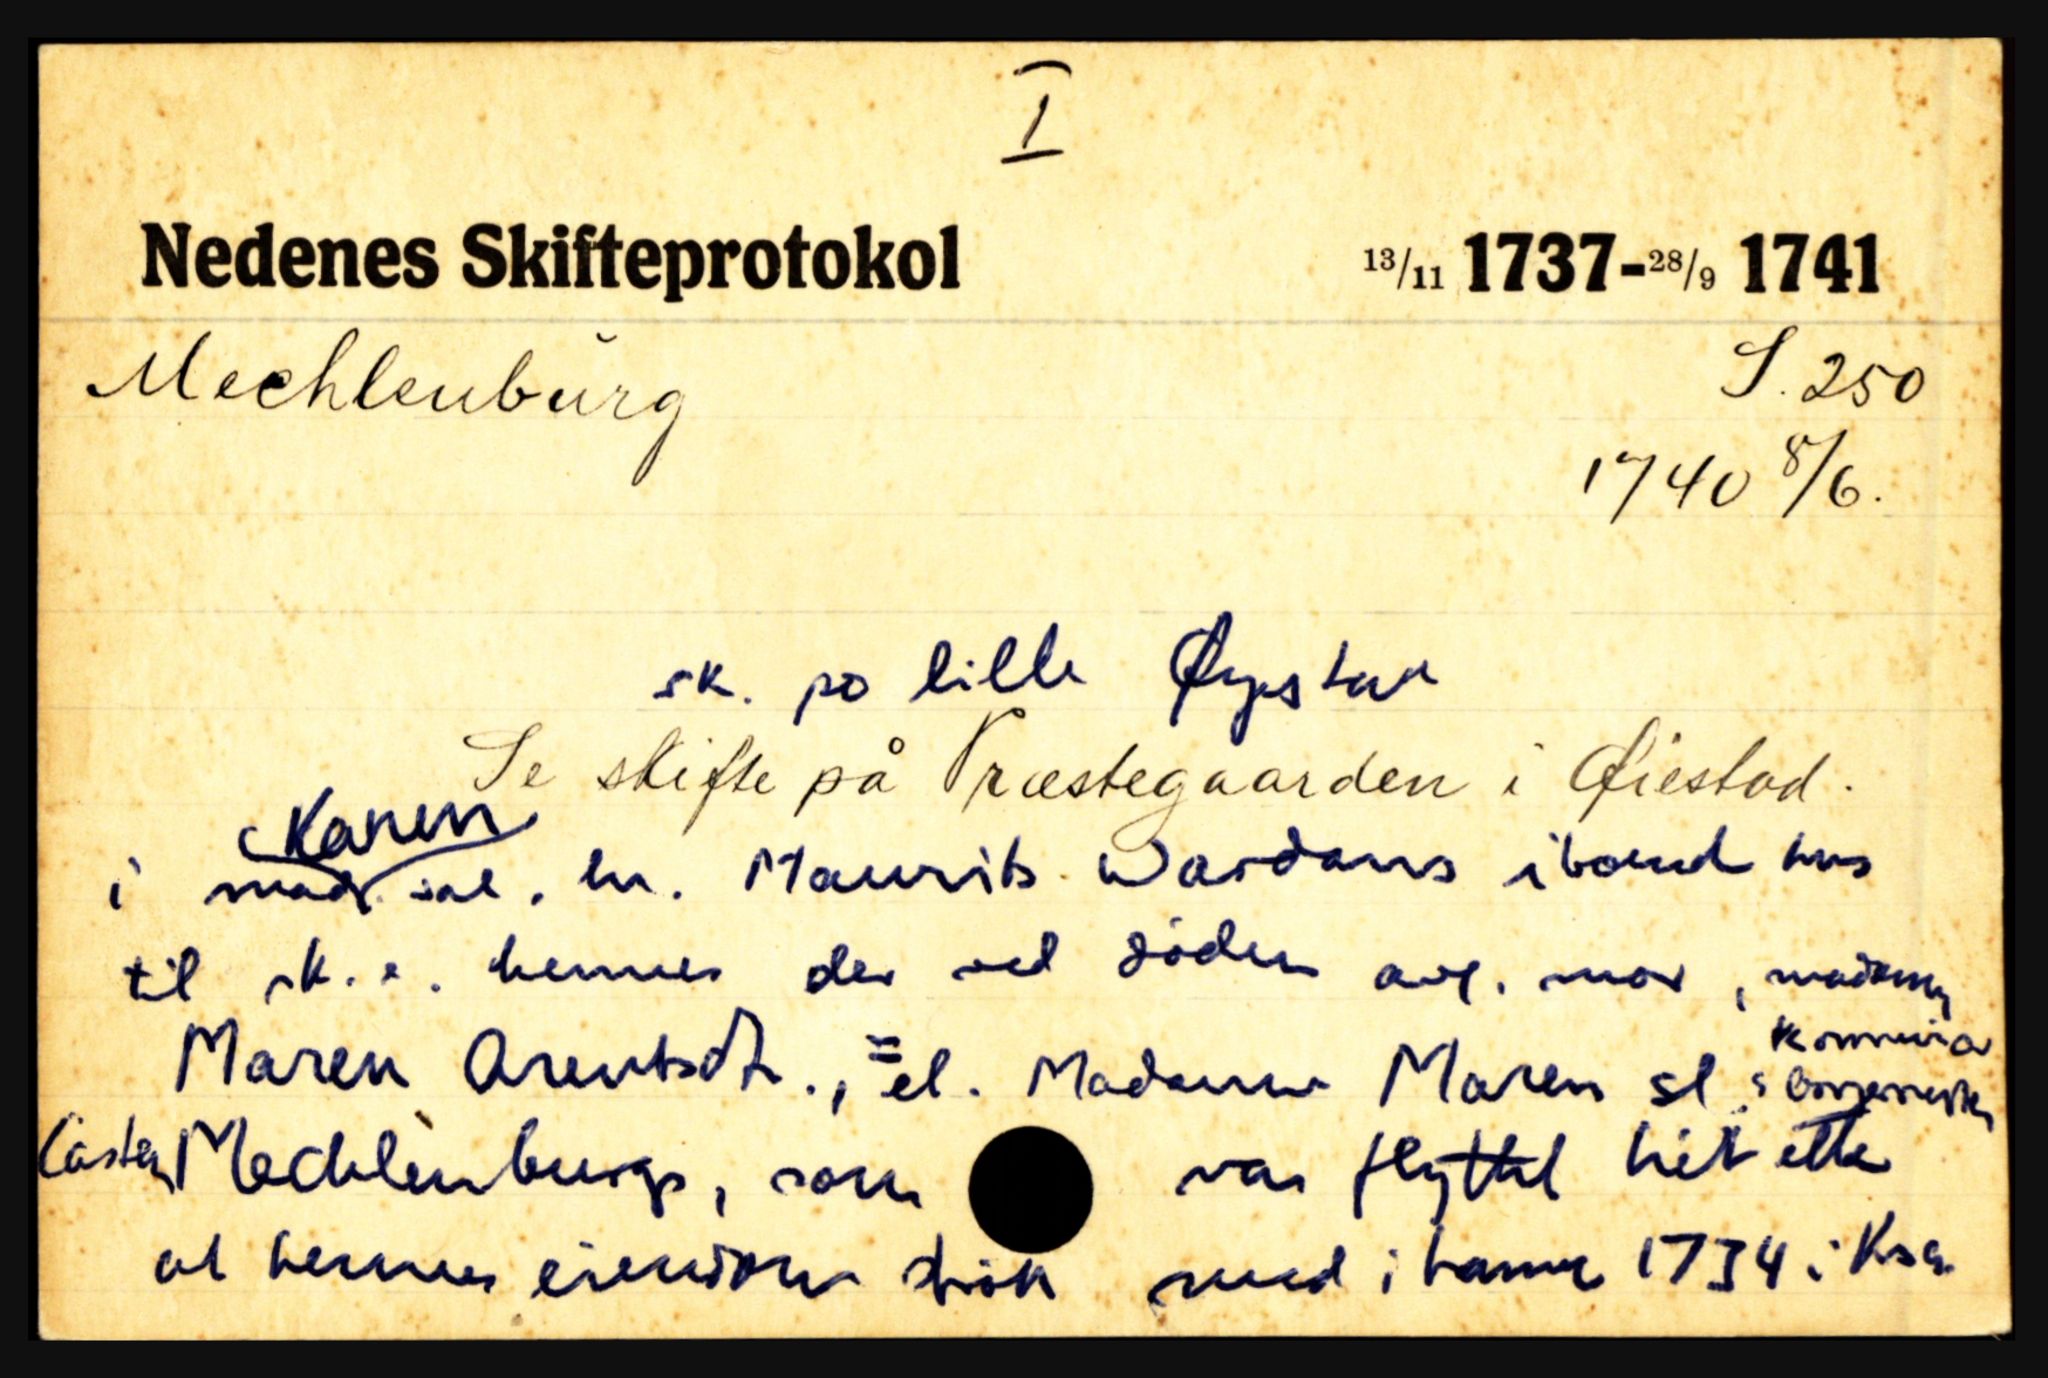 I
Nedenes Skifteprotokol 13/11 1737-28/9 1741
Mechlenburg S. 250
1740 8/6.
sk. po lille Øyestad
Se skifte på Præstegaarden i Øiestad.
Karen
i mad. sal. hr. Maurits Wardans iboend hus
til sk. e. hennes der ved døden avg. mor, madame
Maren Arentsdt., = el. Madamme Maren sl.
Casten Mechlenburgs, som var flyttet hit etter
at hennes eiendom strøk med i brannen 1734 i Ksa.